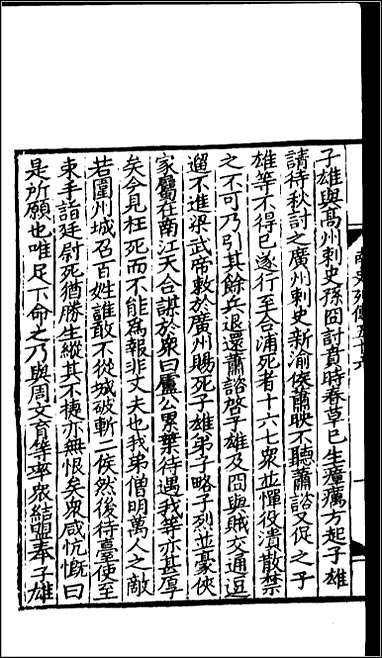 南史列傳五十六
子雄與高州刺史孫冏討賁時春草已生瘴癘方起子雄
請待秋討之廣州刺史新渝侯蕭映不聽蕭諮又促之子
雄等不得已遂行至合浦死者十六七衆並憚役潰散禁
之不可乃引其餘兵退還蕭諮啓子雄及冏與賊交通逗
遛不進梁武帝敕於廣州賜死子雄弟子略子列並豪俠
家屬在南江天合謀於衆曰盧公累葉待遇我等亦甚厚
矣今見枉死而不能爲報非丈夫也我弟僧明萬人之敵
若圍州城召百姓誰敢不從城破斬二侯然後待臺使至
束手詣廷尉死猶勝生縱其不捷亦無恨矣衆咸忼慨曰
是所願也唯足下命之乃與周文育等率衆結盟奉子雄